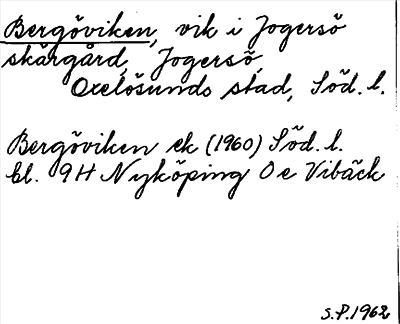 Bergöviken, vik i Jogersö
skärgård, Jogersö,
Oxelösunds stad, Söd. l.
Bergöviken ek (1960) Söd. l.
bl. 9H Nyköping 0e Vibäck
S.P. 1962